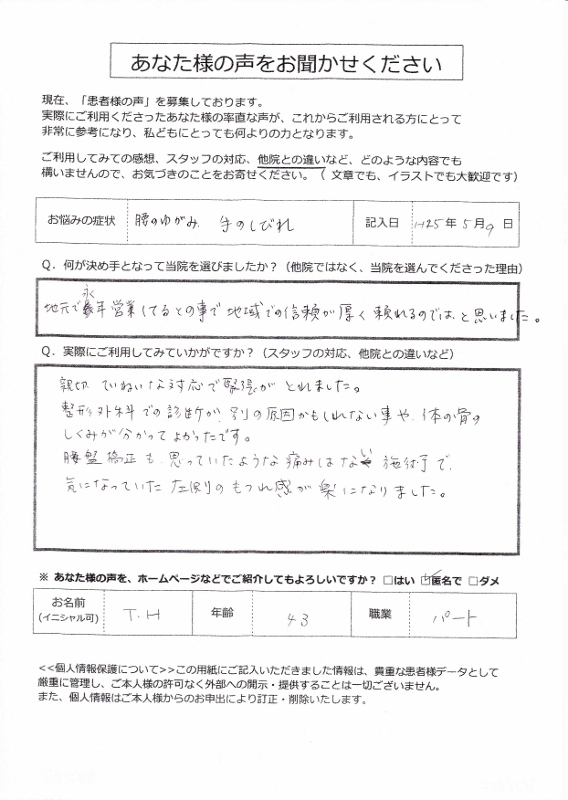 あなた様の声をお聞かせください
現在、「患者様の声」を募集しております。
実際にご利用くださったあなた様の率直な声が、これからご利用される方にとって
非常に参考になり、私どもにとっても何よりの力となります。
ご利用してみての感想、スタッフの対応、他院との違いなど、どのような内容でも
構いませんので、お気づきのことをお寄せください。（ 文章でも、イラストでも大歓迎です）
お悩みの症状 腰のゆがみ 手のしびれ 記入日 H25年5月9日
Q．何が決め手となって当院を選びましたか？（他院ではなく、当院を選んでくださった理由）
地元で永年営業してるとの事で地域での信頼が厚く頼れるのではと思いました。
Q．実際にご利用してみていかがですか？（スタッフの対応、他院との違いなど）
親切 ていねいな対応で緊張がとれました。
整形外科での診断が、別の原因かもしれない事や、体の骨の
しくみが分かってよかったです。
腰盤矯正も、思っていたような痛みはない施術で、
気になっていた左側のもつれ感が楽になりました。
※ あなた様の声を、ホームページなどでご紹介してもよろしいですか？ □はい ☑匿名で □ダメ
お名前
(イニシャル可) T.H 年齢 43 職業 パート
<<個人情報保護について>>この用紙にご記入いただきました情報は、貴重な患者様データとして
厳重に管理し、ご本人様の許可なく外部への開示・提供することは一切ございません。
また、個人情報はご本人様からのお申出により訂正・削除いたします。